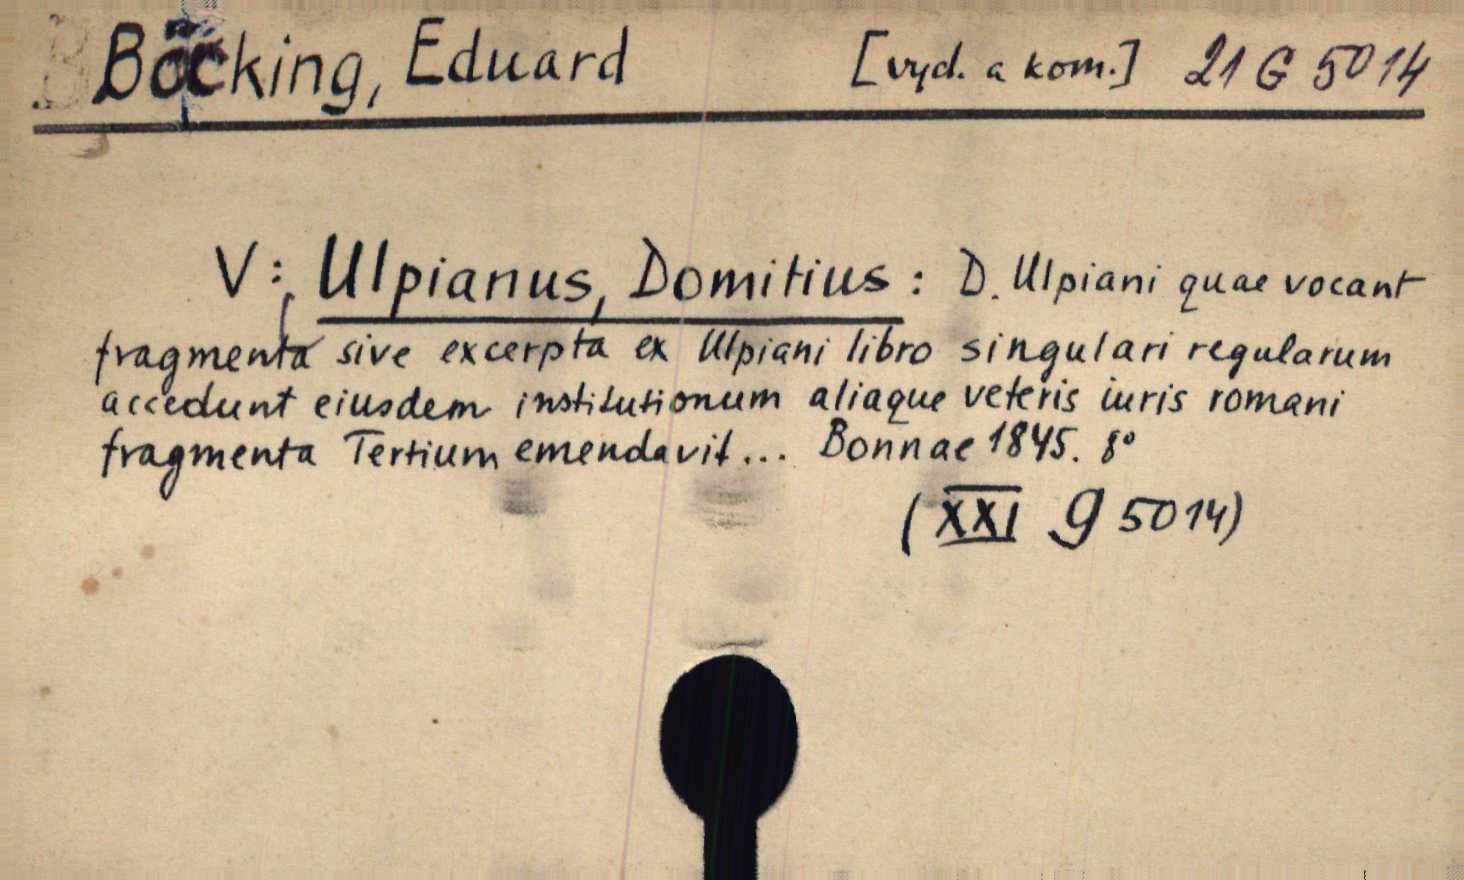 Böcking, Eduard [vyd. a kom.] 21 G 5014
V: Ulpianus, Domitius: D. Ulpiani quae vocant
fragmenta sive excerpta ex Ulpiani libro singulari regularum
accedunt eiusdem institutionum aliaque veteris iuris romani
fragmenta Tertium emendavit... Bonnae 1845. 8°
(XXI g 5014)